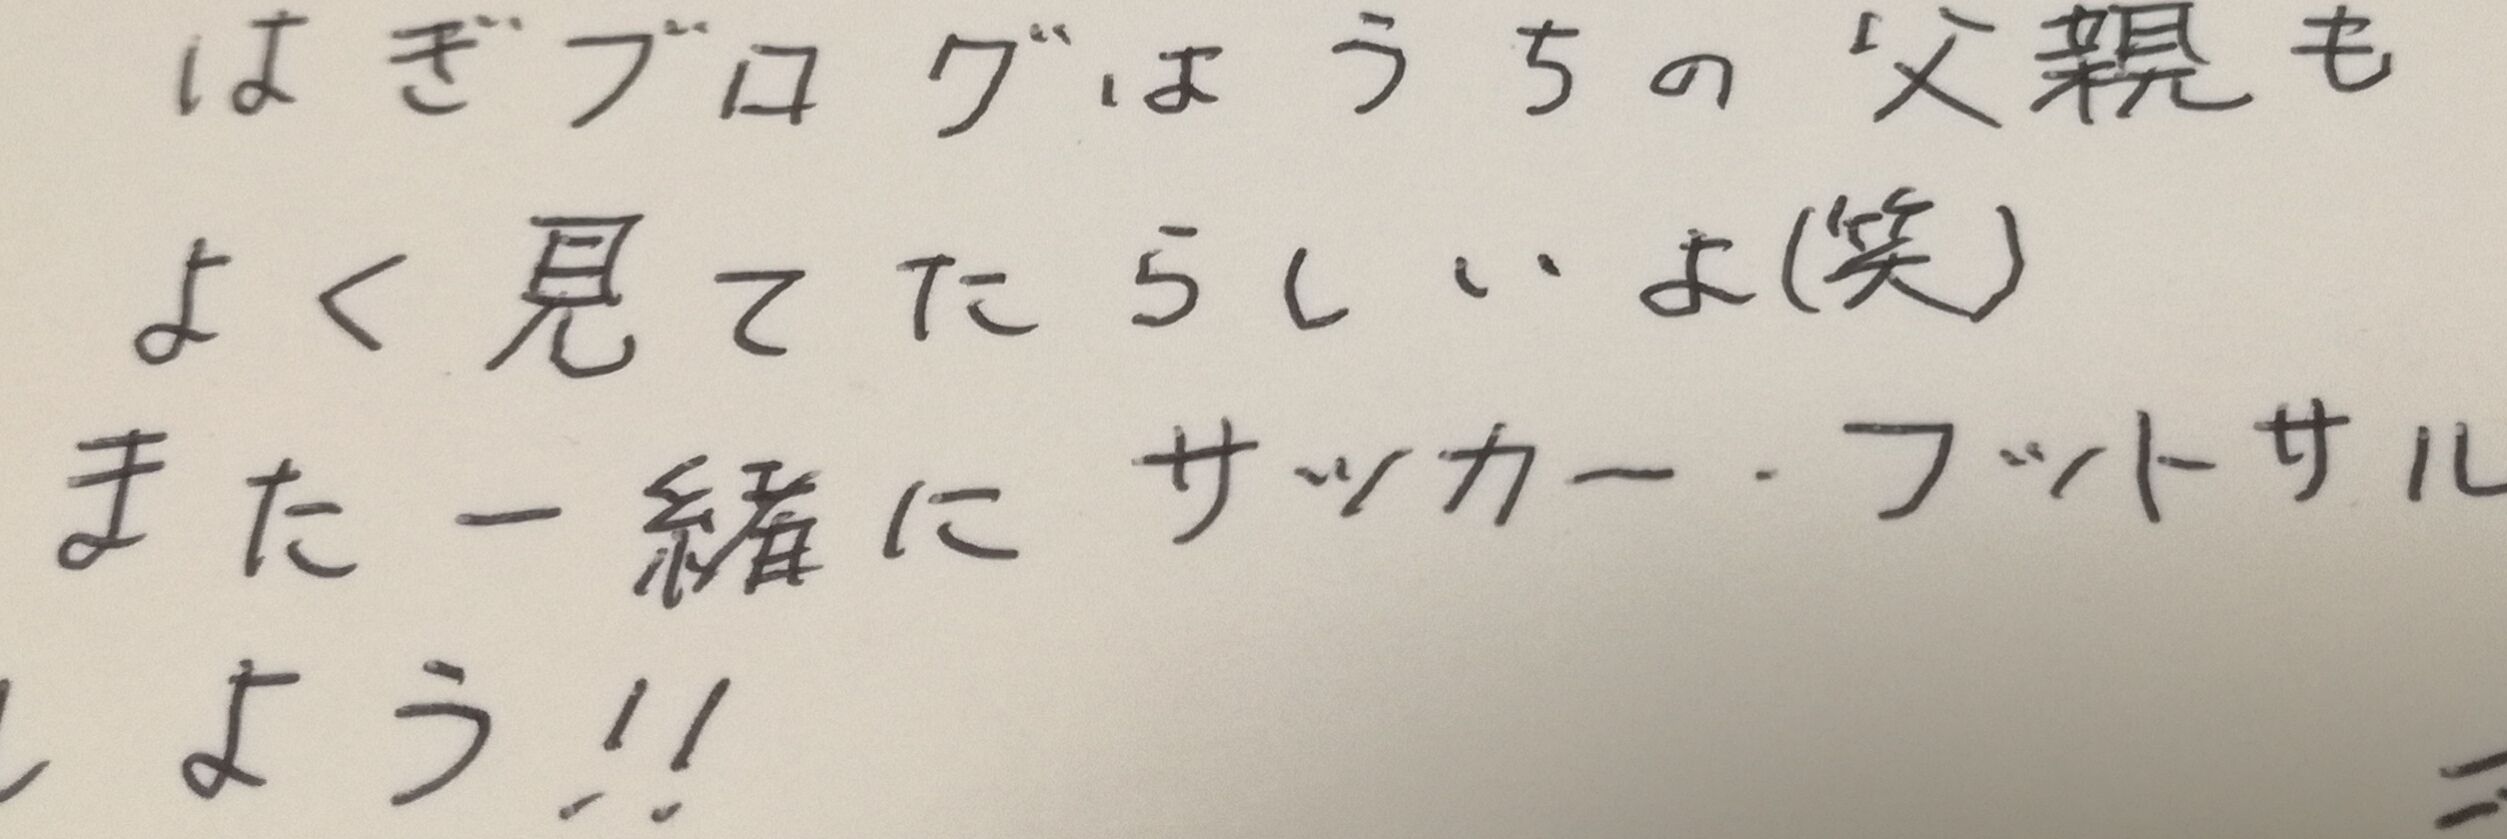 はぎブログはうちの父親も
よく見てたらしいよ(笑)
また一緒にサッカー・フットサル
しよう!!